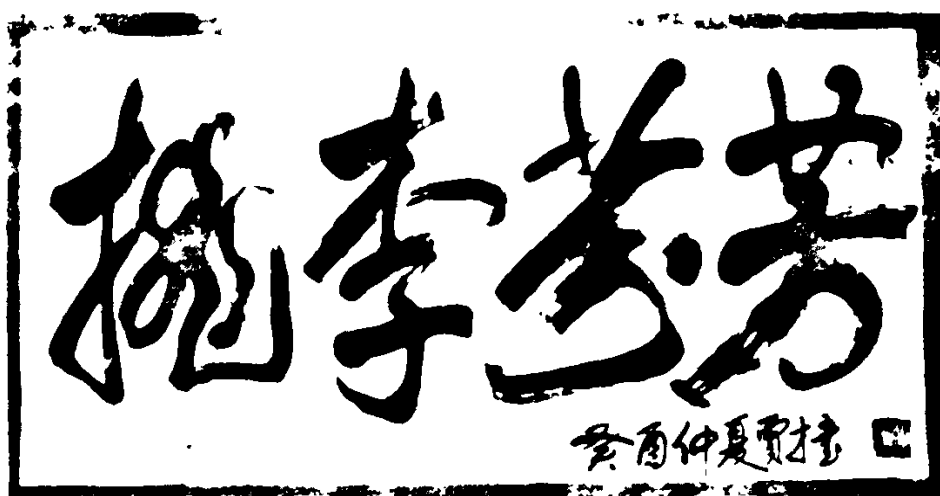 桃李芬芳
癸酉仲夏贾